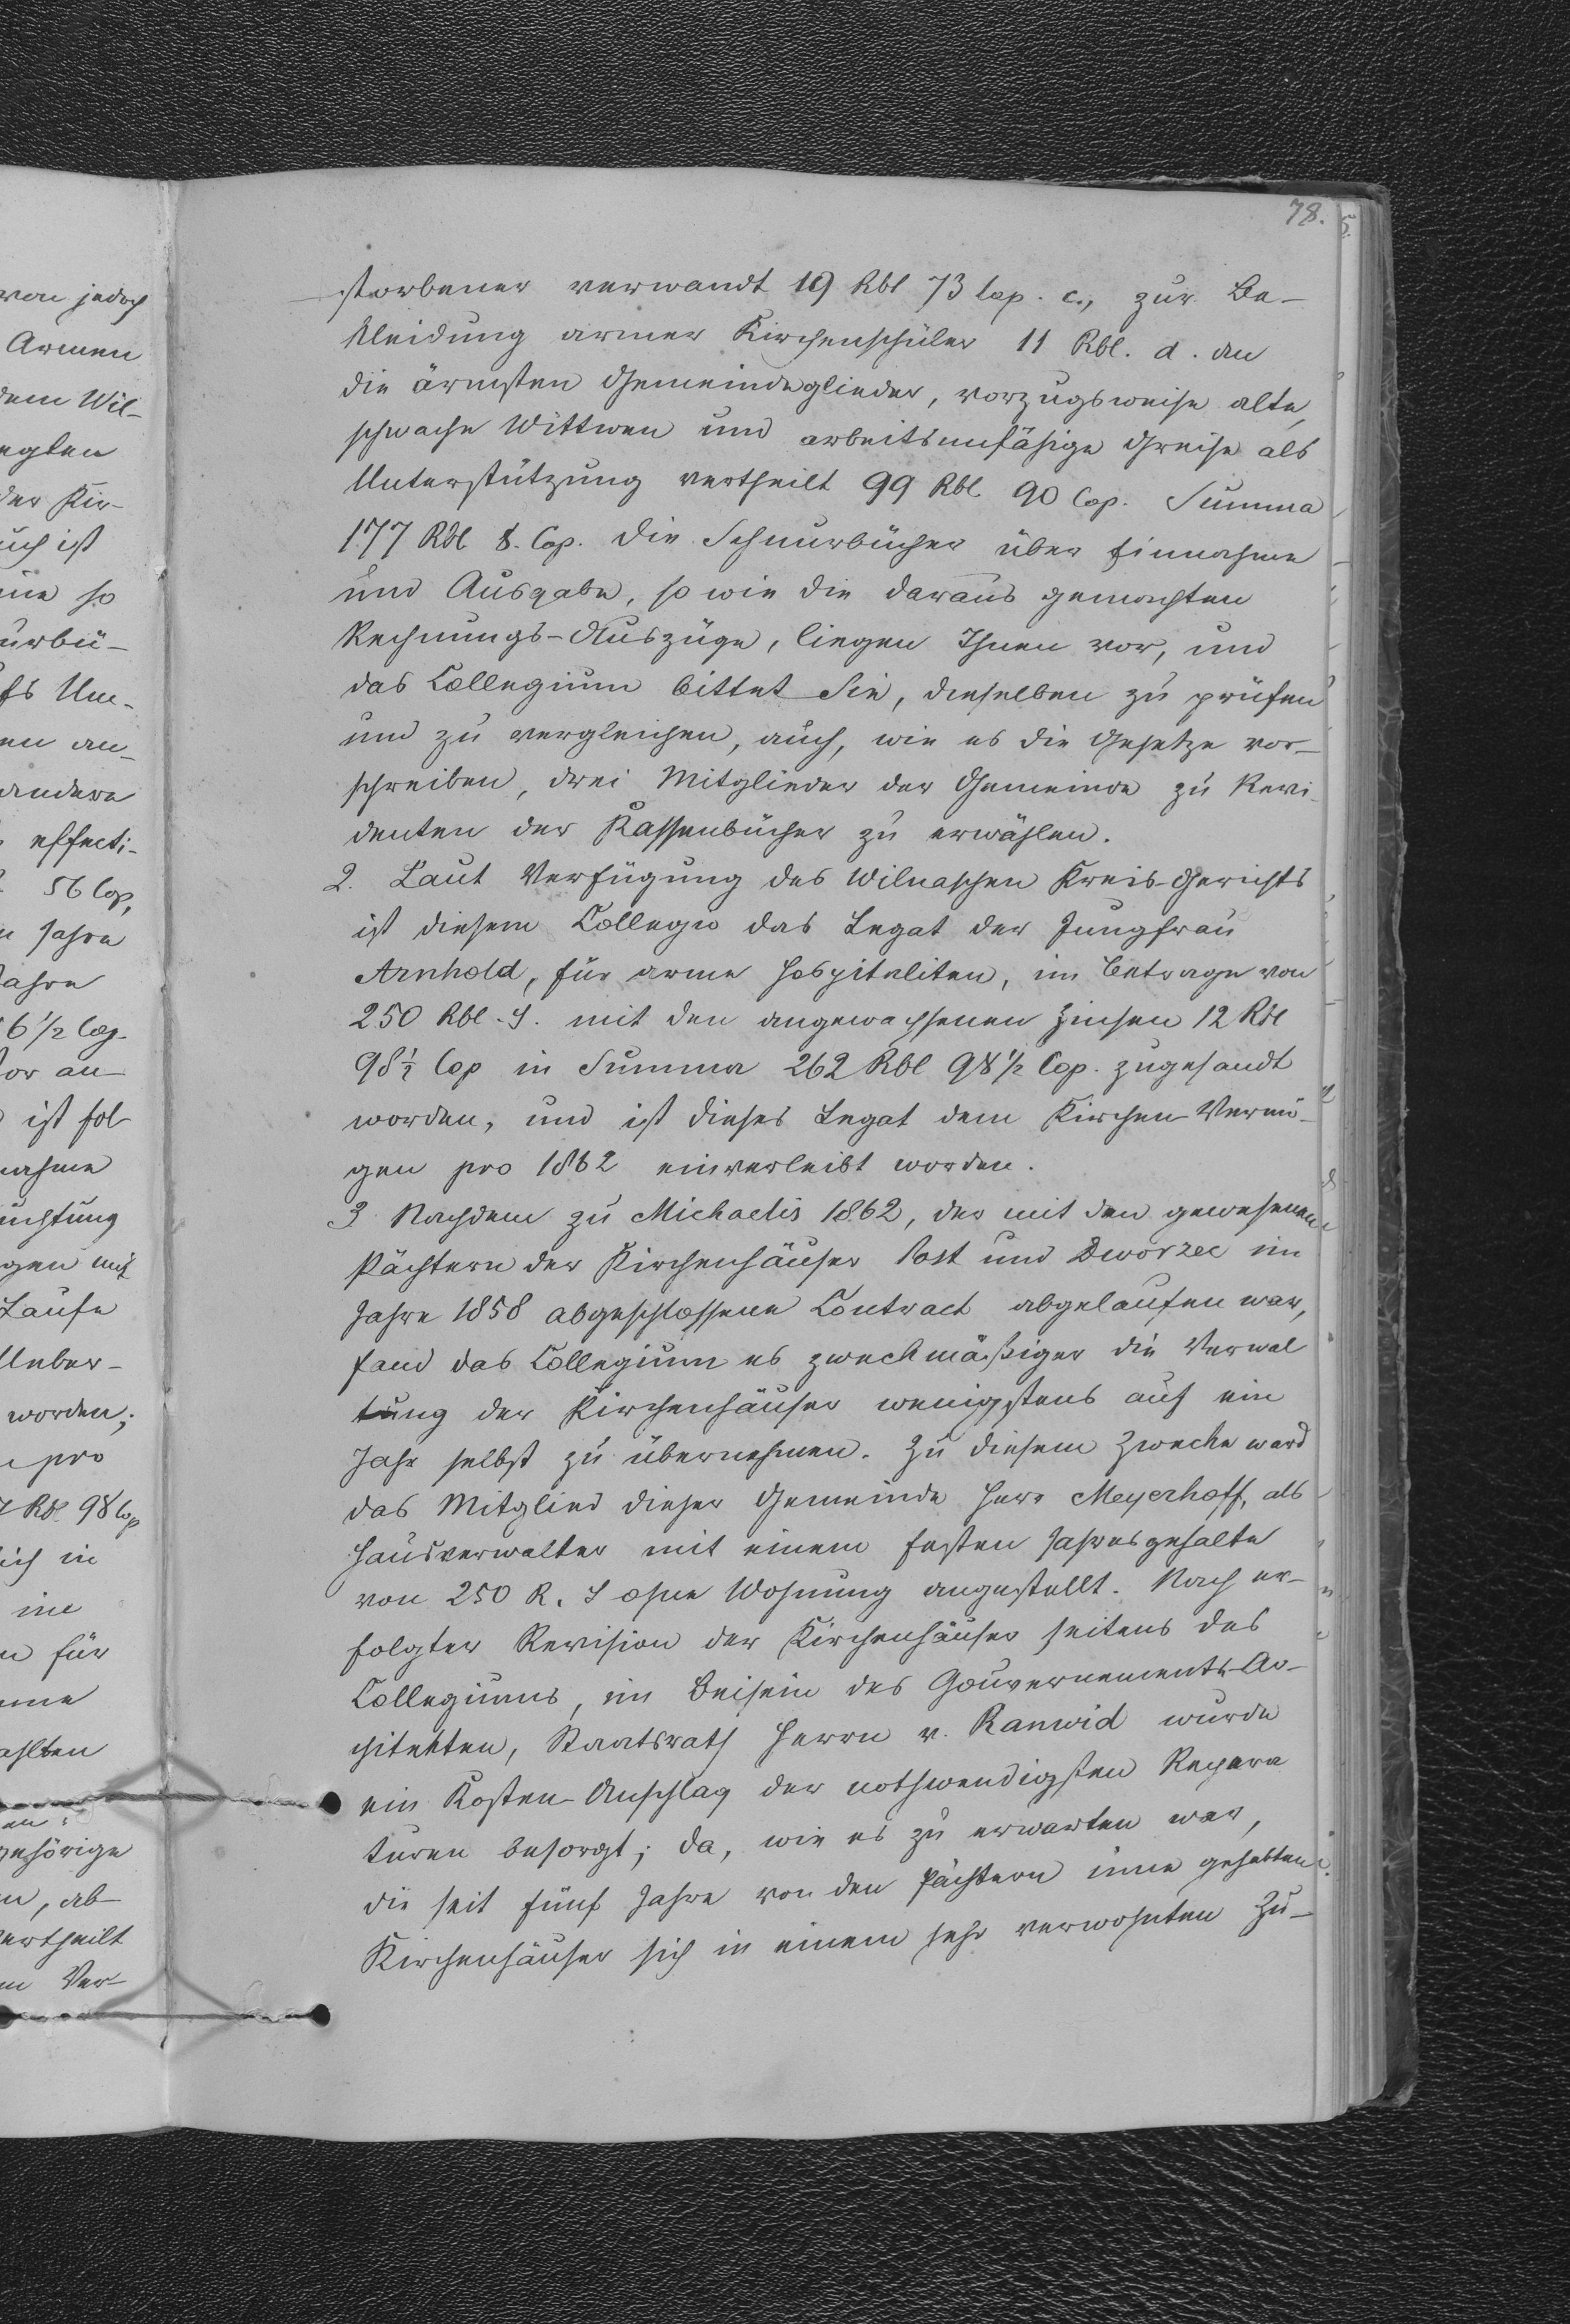 78.
storbener verwandt 19 Rbl 73 Cop. c., zur Be-
kleidung armer Kirchenschüler 11 Rbl. d. an
die ärmsten Gemeindeglieder, vorzugsweise alte,
schwache Wittwen und arbeitsunfähige Greise als
Unterstützung vertheilt 99 Rbl. 90 Cop. Summa
177 Rbl 8. Cop. Die Schnurbücher über Einnahme
und Ausgabe, so wie die daraus gemachten
Rechnungs-Auszüge, liegen Ihnen vor, und
das Collegium bittet Sie, dieselben zu prüfen
und zu vergleichen, auch, wie es die Gesetze vor-
schreiben, drei Mitglieder der Gemeinde zu Revi-
denten der Kassenbücher zu erwählen.
2. Laut Verfügung des Wilnaschen Kreis-Gerichts
ist diesem Collegio das Legat der Jungfrau
Arnhold, für arme Hospitaliten, im Betrage von
250 Rbl. S. mit den angewachsenen Zinsen 12 Rbl
98½ Cop in Summa 262 Rbl 98½ Cop. zugesandt
worden, und ist dieses Legat dem Kirchen-Vermö-
gen pro 1862 einverleibt worden.
3 Nachdem zu Michaelis 1862, der mit den gewesenen
Pächtern der Kirchenhäuser Post und Dworzec im
Jahre 1858 abgeschlossene Contract abgelaufen war,
fand das Collegium es zweckmäßiger die Verwal
tung der Kirchenhäuser wenigstens auf ein
Jahr selbst zu übernehmen. Zu diesem Zwecke ward
das Mitglied dieser Gemeinde Herr Meyerhoff, als
Hausverwalter mit einem festen Jahresgehalte
von 250 R. S ohne Wohnung angestellt. Nach er-
folgter Revision der Kirchenhäuser seitens des
Collegiums, im Beisein des Gouvernements-Ar-
chitekten, Staatsrath Herrn v. Ranwid wurde
ein Kosten-Anschlag der nothwendigsten Repara
turen besorgt; da, wie es zu erwarten war,
die seit fünf Jahre von den Pächtern inne gehabten
Kirchenhäuser sich in einem sehr verwohnten Zu-